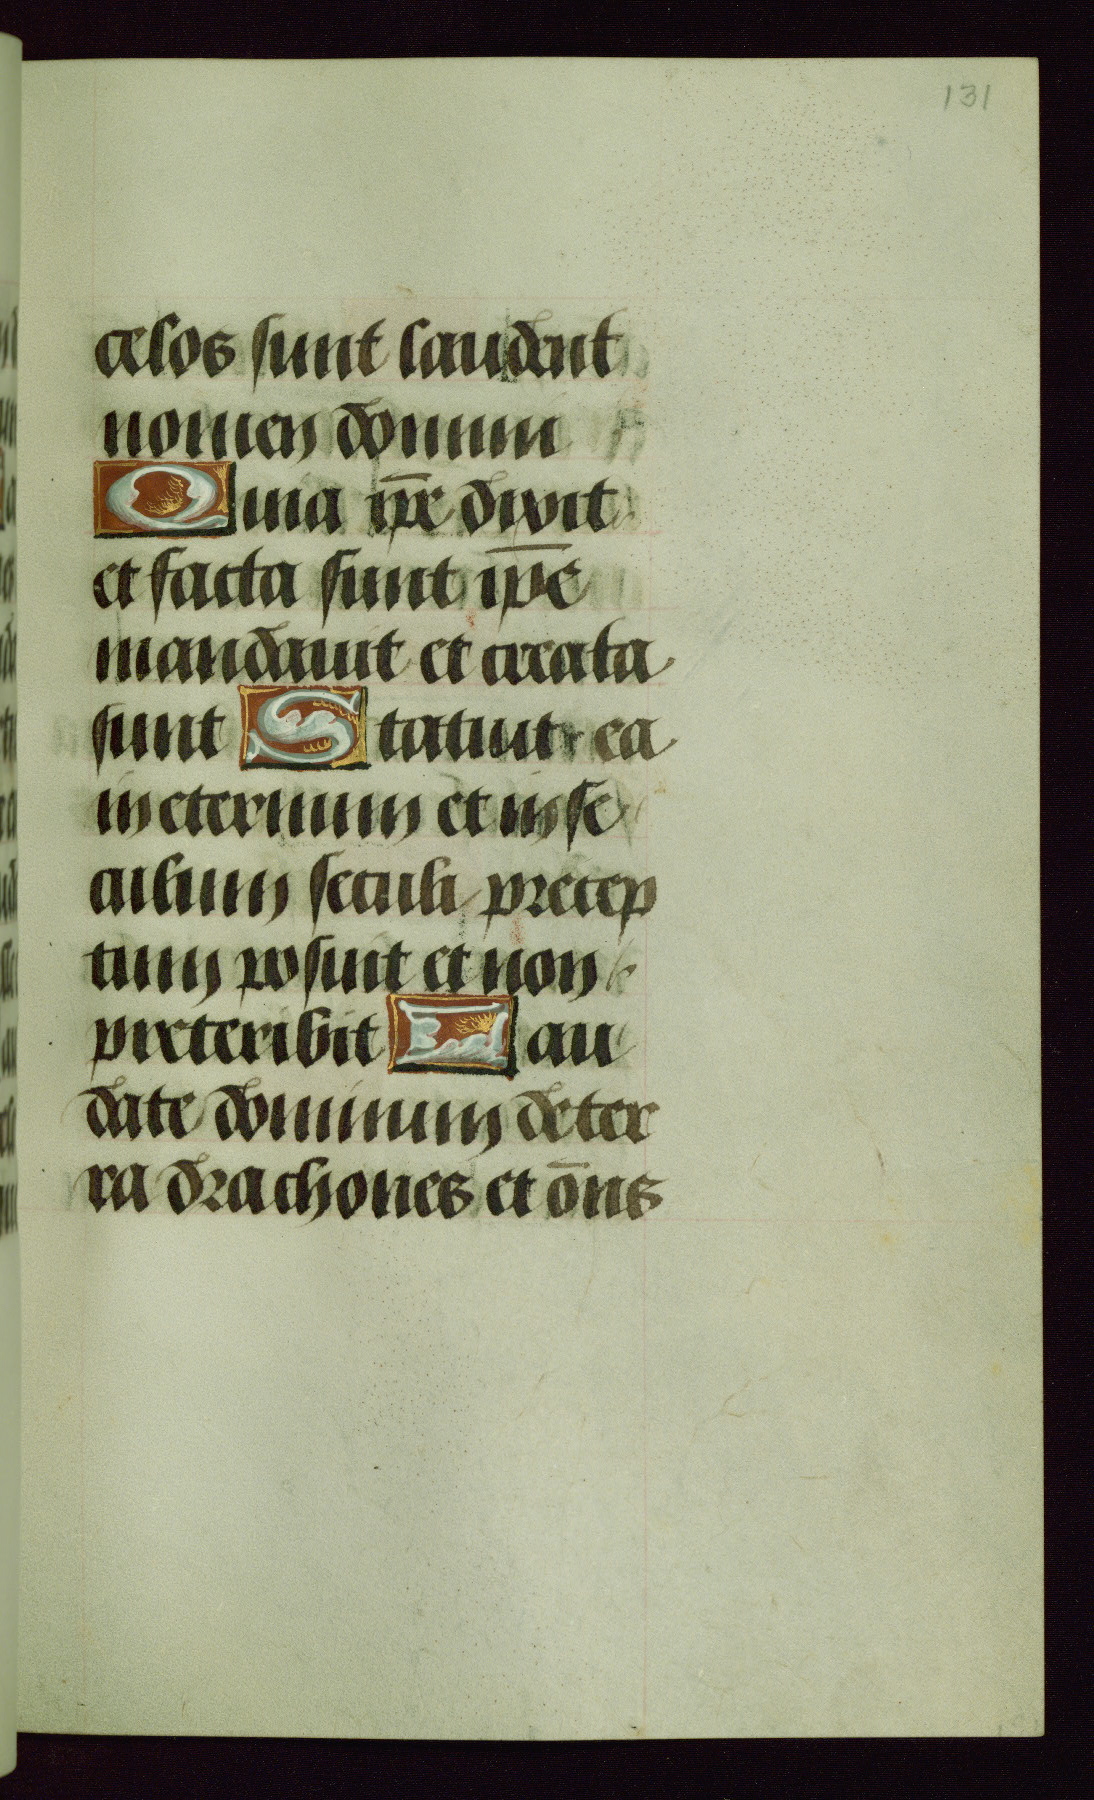 131
celos sunt laudent
nomen domini
Quia ip̄e dixit
et facta sunt ip̄e
mandauit et creata
sunt Statuit ea
in eternum et in se
culum seculi precep
tum posuit et non
preteribit Lau
date dominum de ter
ra drachones et om̄s